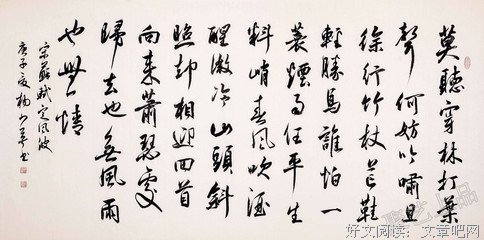 莫聽穿林打葉
聲何妨吟嘯且
徐行竹杖芒鞋
輕勝馬誰怕一
蓑煙雨任平生
料峭春風吹酒
醒微冷山頭斜
照却相迎回首
向來蕭瑟處
歸去也無風雨
也無情
宋蘇軾定風波
庚子夏楊書
好文阅读：文章吧网